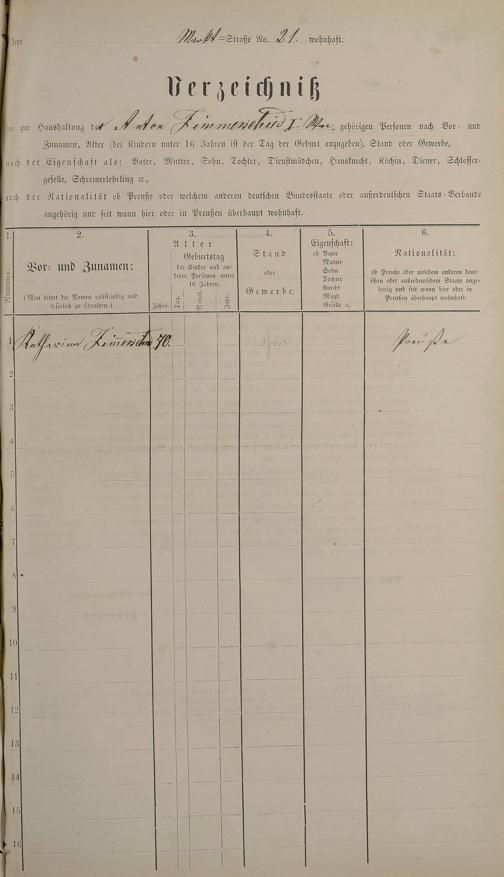 Jetzt Markt=Straße No. 21. wohnhaft.
Verzeichniß
der zur Haushaltung des Anton Zimmerschied I. Wwe. gehörigen Personen nach Vor- und
Zunamen, Alter (bei Kindern unter 16 Jahren ist der Tag der Geburt anzugeben), Stand oder Gewerbe,
nach der Eigenschaft als: Vater, Mutter, Sohn, Tochter, Dienstmädchen, Hausknecht, Köchin, Diener, Schlosser-
geselle, Schreinerlehrling ꝛc.,
nach der Nationalität ob Preuße oder welchem anderen deutschen Bundesstaate oder außerdeutschen Staats-Verbande
angehörig und seit wann hier oder in Preußen überhaupt wohnhaft.
1.
Nummer.
2.
Vor- und Zunamen:
(Man bittet die Namen vollständig und
leserlich zu schreiben.)
3.
Alter
Geburtstag
der Kinder und an-
derer Personen unter
16 Jahren.
Jahre. Tag. Monat. Jahr.
4.
Stand
oder
Gewerbe.
5.
Eigenschaft:
ob Vater
Mutter
Sohn
Tochter
Knecht
Magd
Geselle ꝛc.
6.
Nationalität:
ob Preuße oder welchem anderen deut-
schen oder außerdeutschen Staate ange-
hörig und seit wann hier oder in
Preußen überhaupt wohnhaft.
1 Katharina 70. Preuße
2
3
4
5
6
7
8
9
10
11
12
13
14
15
16